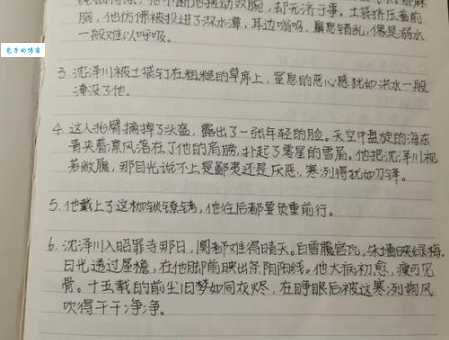 包子的博客
腕，他仿佛被投进了深水潭，耳边嗡嗡，鼻息错乱，像是溺水
一般难以呼吸。
3. 沈泽川被土袋钉在粗糙的草席上，窒息的恶心感犹如洪水一般
淹没了他。
4. 这人抬臂摘掉了头盔，露出了一张年轻的脸。天空中盘旋的海东
青夹着凛风落在了他的肩膀，扑起了零星的雪屑。他把沈泽川视
若敝履，那目光说不上是鄙夷还是厌恶，寒冽得犹如刀锋。
5. 他戴上了这枷锁镣铐，他往后都要负重前行。
6. 沈泽川入昭罪寺那日，阒都难得晴天。白雪覆宫瓦，朱墙映绿梅。
日光透过屋檐，在他脚前映出条阴阳线。他大病初愈，瘦可见
骨。十五载的前尘旧梦如同灰烬，在睁眼后被这寒冽朔风
吹得干干净净。